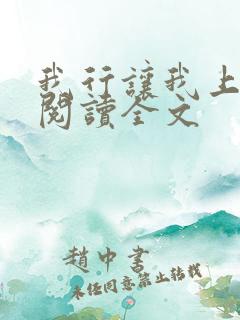 我行讓我上
閱讀全文
趙中書
未经同意禁止转载